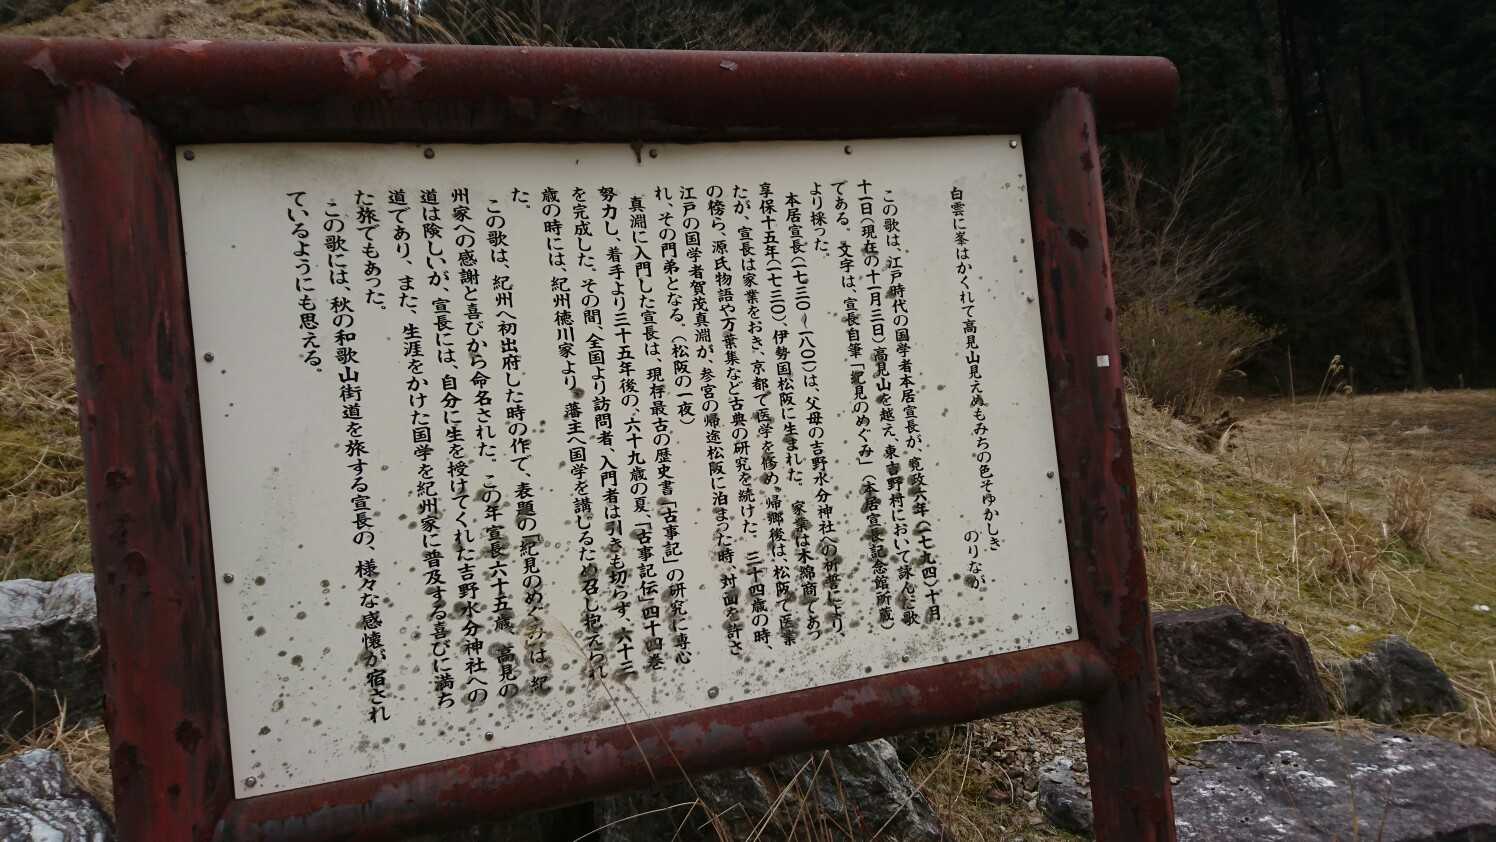 白雲に峯はかくれて高見山見えぬもみちの色そゆかしき
のりなが
この歌は、江戸時代の国学者本居宣長が、寛政六年(一七九四)十月
十一日(現在の十一月三日)高見山を越え、東吉野村において詠んだ歌
である。文字は、宣長自筆「紀見のめぐみ」(本居宣長記念館所蔵)
より採った。
本居宣長(一七三〇〜一八〇一)は、父母の吉野水分神社への祈誓により、
享保十五年(一七三〇)、伊勢国松阪に生まれた。家業は木綿商であっ
たが、宣長は家業をおき、京都で医学を修め、帰郷後は、松阪で医業
の傍ら、源氏物語や万葉集など古典の研究を続けた。三十四歳の時、
江戸の国学者賀茂真淵が、参宮の帰途松阪に泊まった時、対面を許さ
れ、その門弟となる。(松阪の一夜)
真淵に入門した宣長は、現存最古の歴史書「古事記」の研究に専心
努力し、着手より三十五年後の、六十九歳の夏、「古事記伝」四十四巻
を完成した。その間、全国より訪問者、入門者は引きも切らず、六十三
歳の時には、紀州徳川家より、藩主へ国学を講じるため召し抱えられ
た。
この歌は、紀州へ初出府した時の作で、表題の「紀見のめぐみ」は、紀
州家への感謝と喜びから命名された。この年宣長六十五歳、高見の
道は険しいが、宣長には、自分に生を授けてくれた吉野水分神社への
道であり、また、生涯をかけた国学を紀州家に普及する喜びに満ち
た旅でもあった。
この歌には、秋の和歌山街道を旅する宣長の、様々な感懐が宿され
ているようにも思える。